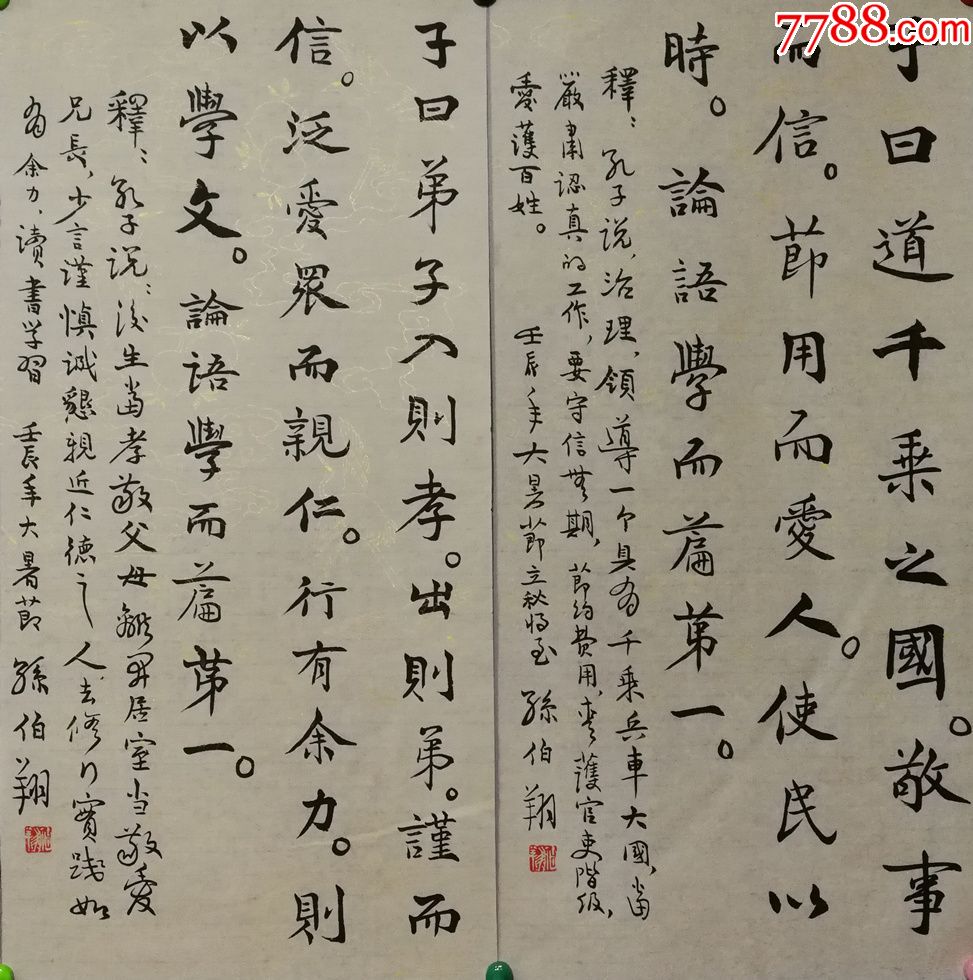 7788.com
子曰道千乘之國。敬事
而信。節用而愛人。使民以
時。論語學而篇第一。
釋：孔子說，治理，領導一个具有千乘兵車大國，當
嚴肅認真的工作，要守信無期，節約費用，愛護官吏階級，
愛護百姓。 壬辰年大暑節立秋將至 孫伯翔
子曰弟子入則孝。出則弟。謹而
信。泛愛眾而親仁。行有余力。則
以學文。論語學而篇第一。
釋：孔子說：後生當孝敬父母離開居室当敬愛
兄長，少言謹慎誠懇親近仁德之人去修行實踐如
有余力、讀書学習 壬辰年大暑節 孫伯翔